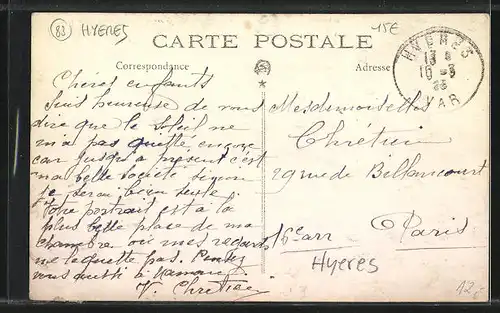 83 HYERES
15E
CARTE POSTALE
Correspondance
Adresse
HYERES
VAR
Chères enfants
suis heureuse de vous
dire que le Soleil ne
m'a pas quitté encore
car jusqu'a present c'est
ma belle société sinon
je serai bien seule.
Votre portrait est a la
plus belle place de ma
chambre ou mes regards
ne le quitte pas. Pensez
vous quitti à Maman
V. Chretien
Mesdemoiselles
Chrétien
29 rue de Billancourt
16e arr Paris
Hyeres
12E